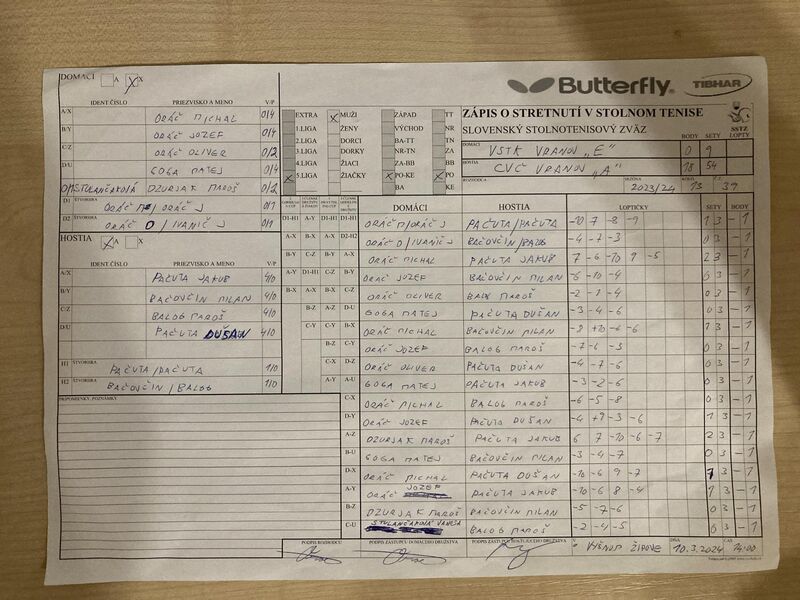 DOMÁCI A X
Butterfly TIBHAR
IDENT.ČÍSLO PRIEZVISKO A MENO V/P
A/X ORÁČ MICHAL 0/4
B/Y ORÁČ JOZEF 0/4
C/Z ORÁČ OLIVER 0/2
D/U GOGA MATEJ 0/4
DZURJAK MAROŠ 0/2
D1 ORÁČ M/ORÁČ J 0/1
D2 ORÁČ O/IVANIČ J 0/1
HOSTIA A X
IDENT.ČÍSLO PRIEZVISKO A MENO V/P
A/X PAČUTA JAKUB 4/0
B/Y BAČOVČIN MILAN 4/0
C/Z BALOG MAROŠ 4/0
D/U PAČUTA DUŠAN 4/0
H1 ŠTVORHRA PAČUTA/PAČUTA 1/0
H2 ŠTVORHRA BAČOVČIN/BALOG 1/0
PRIPOMIENKY, POZNÁMKY
EXTRA MUŽI ZÁPAD TT
1.LIGA ŽENY VÝCHOD NR
2.LIGA DORCI BA-TT TN
3.LIGA DORKY NR-TN ZA
4.LIGA ŽIACI ZA-BB BB
5.LIGA ŽIAČKY PO-KE PO
BA KE
ZÁPIS O STRETNUTÍ V STOLNOM TENISE
SLOVENSKÝ STOLNOTENISOVÝ ZVÄZ
SSTZ
BODY SETY LOPTY
DOMÁCI VSTK VRANOV „E" 0 9
HOSTIA CVČ VRANOV „A" 18 54
ROZHODCA SEZÓNA 2023/24 13
DOMÁCI HOSTIA LOPTIČKY SETY BODY
D1-H1 ORÁČ M/ORÁČ J PAČUTA/PAČUTA -10 7 -8 -9 1 3 - 1
D2-H2 ORÁČ O/IVANIČ J BAČOVČIN/BALOG -4 -7 -3 0 3 - 1
A-X ORÁČ MICHAL PAČUTA JAKUB 7 -6 -10 9 -5 2 3 - 1
B-Y ORÁČ JOZEF BAČOVČIN MILAN -6 -10 -4 0 3 - 1
C-Z ORÁČ OLIVER BALOG MAROŠ -2 -1 -4 0 3 - 1
D-U GOGA MATEJ PAČUTA DUŠAN -3 -4 -6 0 3 - 1
B-X ORÁČ MICHAL BAČOVČIN MILAN -8 +10 -6 -6 1 3 - 1
C-Y ORÁČ JOZEF BALOG MAROŠ -7 -6 -3 0 3 - 1
D-Z ORÁČ OLIVER PAČUTA DUŠAN -4 -7 -6 0 3 - 1
A-U GOGA MATEJ PAČUTA JAKUB -3 -2 -6 0 3 - 1
C-X ORÁČ MICHAL BALOG MAROŠ -6 -5 -8 0 3 - 1
D-Y ORÁČ JOZEF PAČUTA DUŠAN -4 +9 -3 -6 1 3 - 1
A-Z DZURJAK MAROŠ PAČUTA JAKUB 6 7 -10 -6 -7 2 3 - 1
B-U GOGA MATEJ BAČOVČIN MILAN -3 -4 -7 0 3 - 1
D-X ORÁČ MICHAL PAČUTA DUŠAN -10 -6 9 -7 1 3 - 1
A-Y ORÁČ JOZEF PAČUTA JAKUB -10 -6 8 -4 1 3 - 1
B-Z DZURJAK MAROŠ BAČOVČIN MILAN -5 -7 -6 0 3 - 1
C-U BALOG MAROŠ -2 -4 -5 0 3 - 1
PODPIS ROZHODCU PODPIS ZÁSTUPCU DOMÁCEHO DRUŽSTVA PODPIS ZÁSTUPCU HOSŤUJÚCEHO DRUŽSTVA V VYŠNOM ŽIPOVE DŇA 10.3.2024 ČAS 14:00